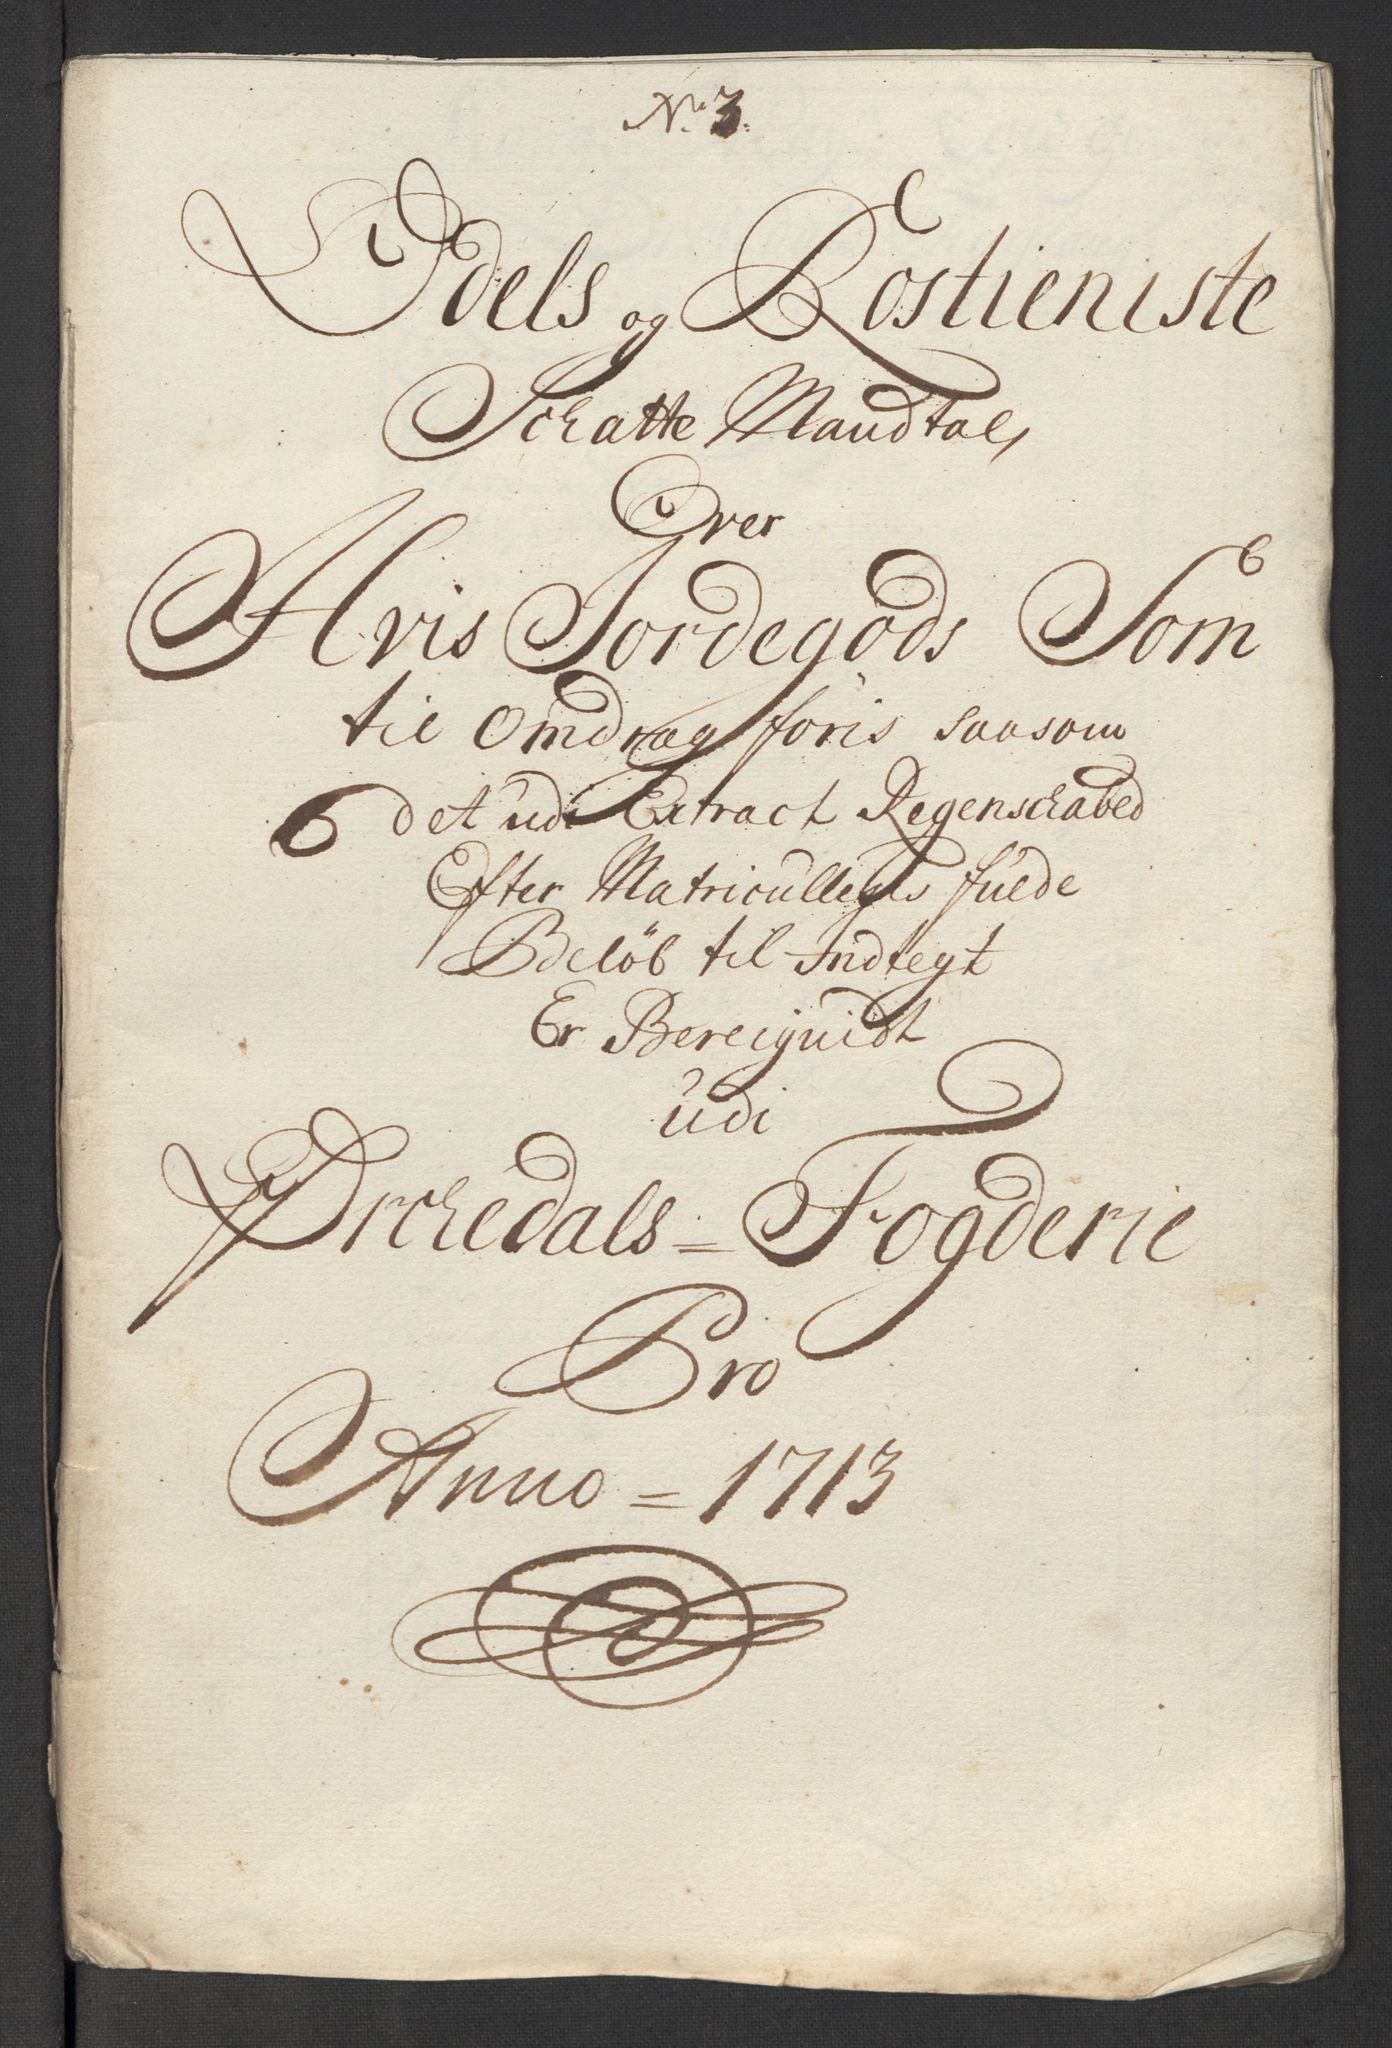 No 3.
Odels og Rostieniste
Schatte Mandtal,
Over
Hvis Jordegods Som
til Omdrag føris saasom
det udi Extract Regenschabed
Efter Matricullens fulde
Beløb til Indtegt
Er Bereignidt
udi
Orchedals = Fogderie
Pro
Anno = 1713